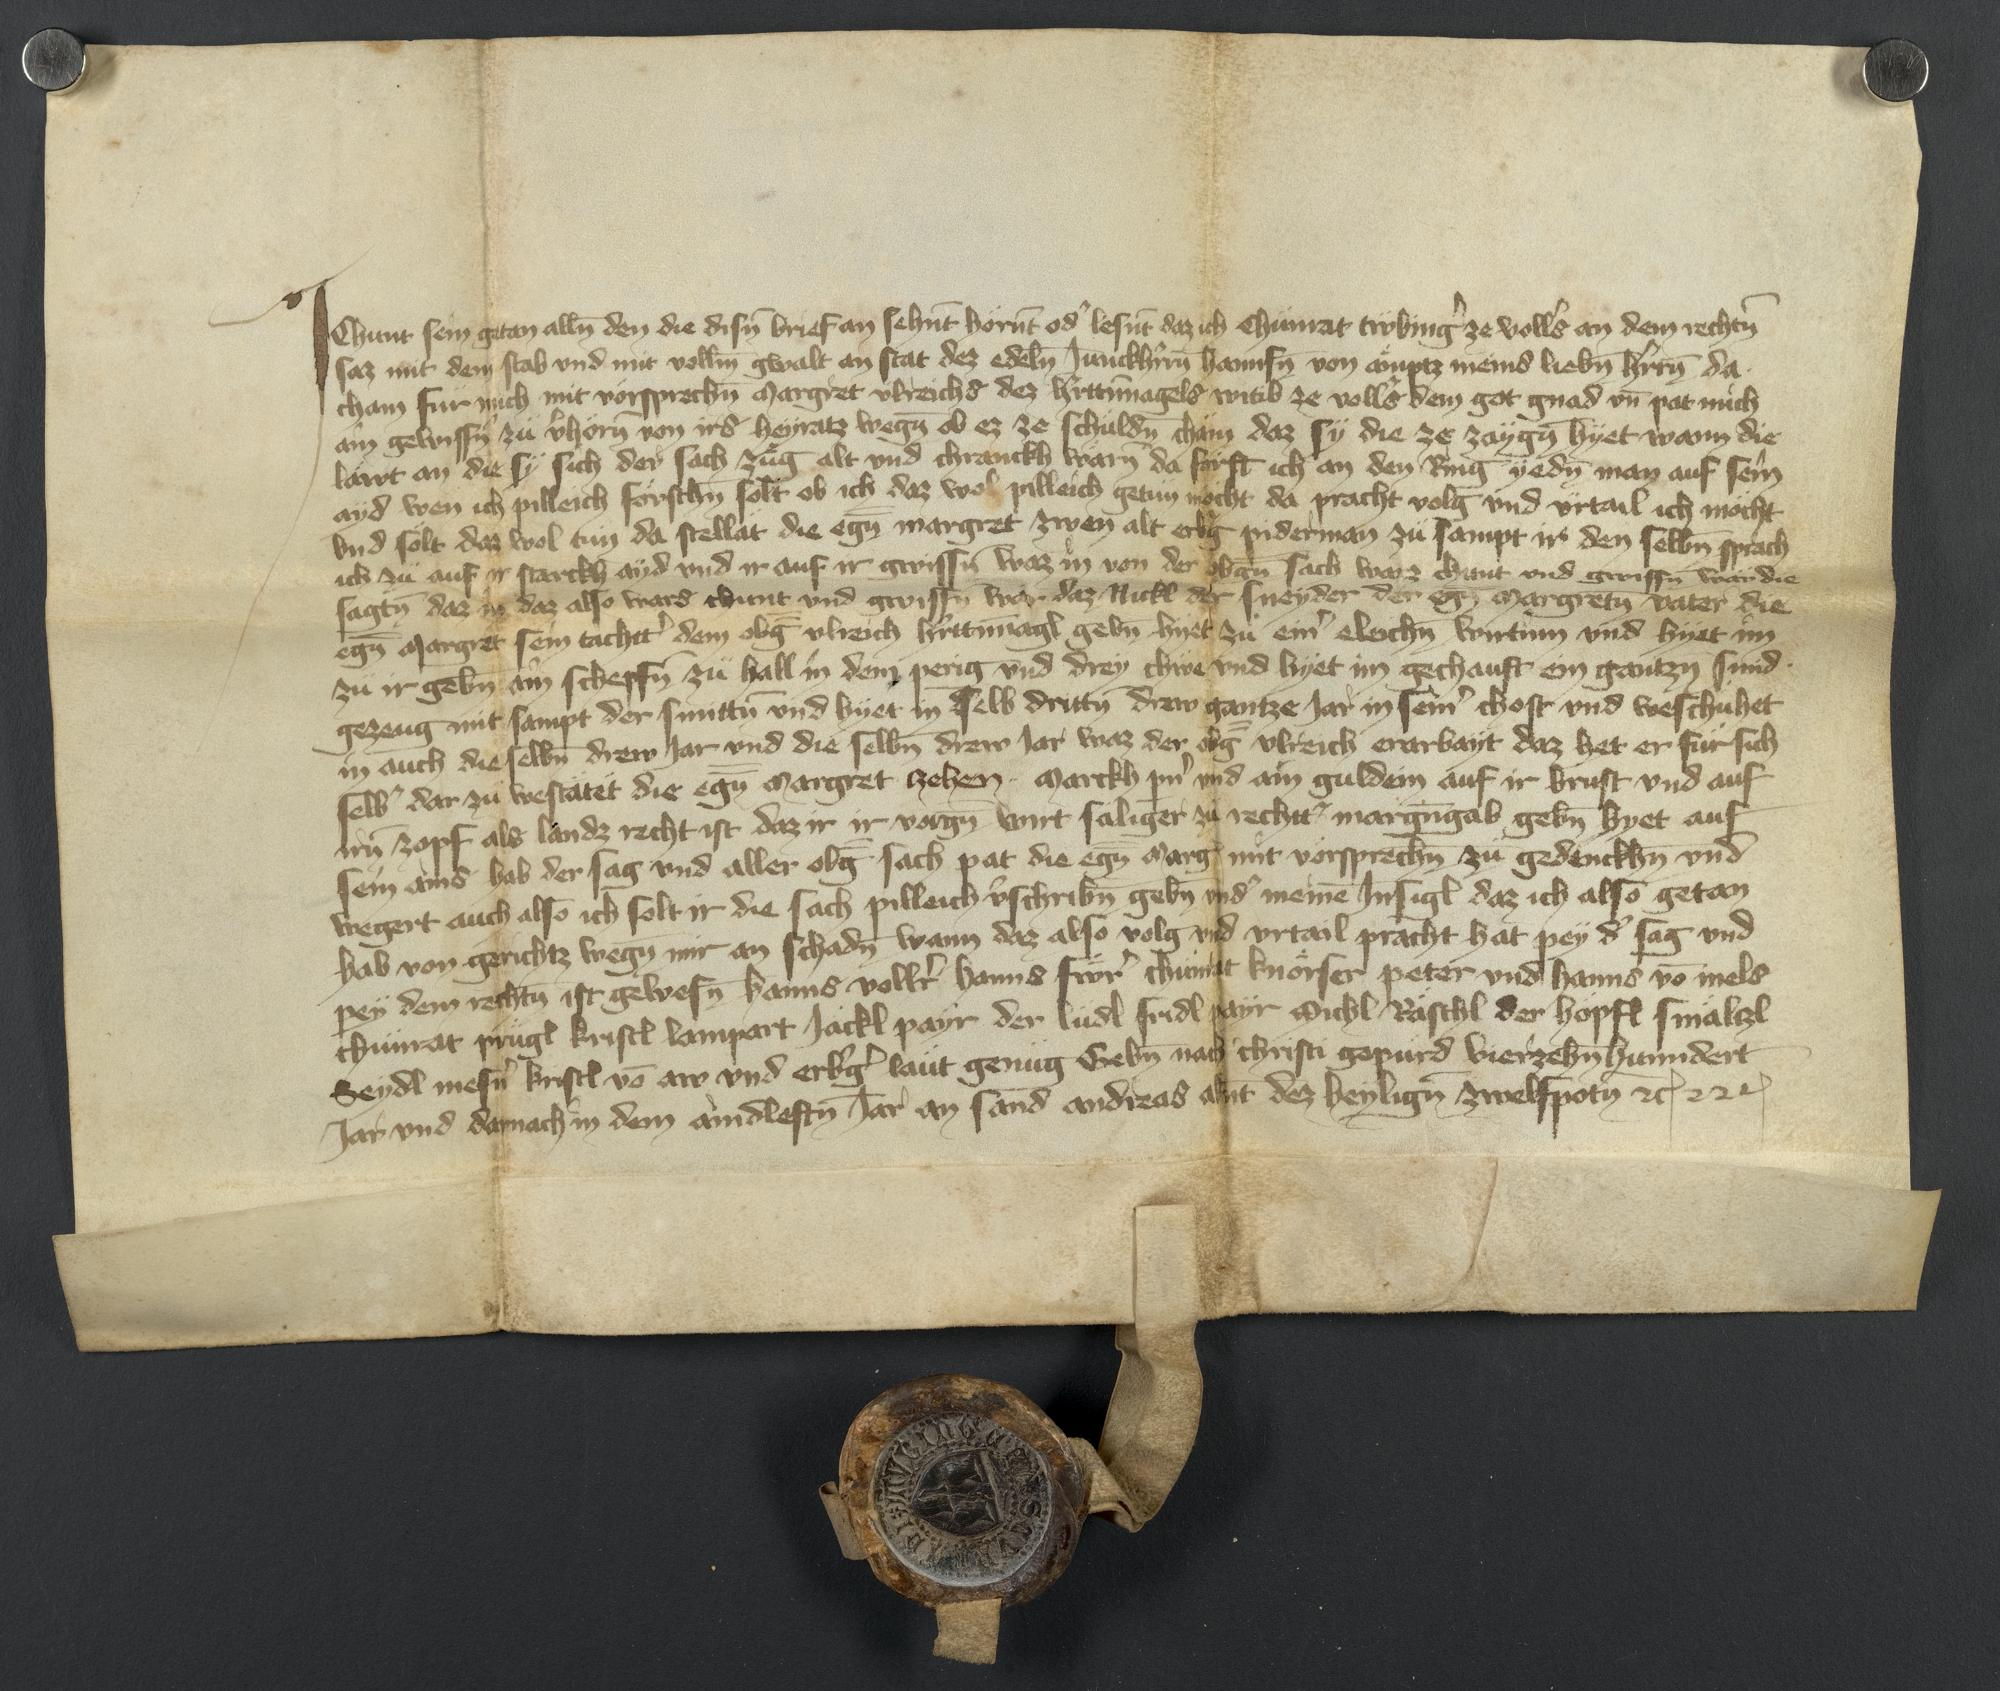 Chunt sein getan alln̄ den die disn̄ brief an sehnt hörnt od' lesnt daz ich Chünrat trybing' ze voll's an dem rechtn̄
saz mit dem stab vnd mit volln̄ gwalt an stat dez edeln̄ Junckh'rn̄ hannsn̄ von ämptz meins liebn̄ h'rrn̄ da
cham für mich mit vorsprechn̄ Margret vlreichs dez h'rttn̄nagels witib ze voll's dem got gnad vn̄ pat mich
ain gewissn̄ zü v'hörn̄ von irs heyratz wegn̄ ob ez ze schuldn̄ chäm daz sÿ die ze zaÿgn̄ hyet wann die
läwt an die sÿ sich der sach züg alt vnd chranckh wärn̄ da forst ich an den Ring ÿedn̄ man auf sein
ayd wen ich pilleich forschn̄ solt ob ich daz wol pilleich getün möcht da pracht volg vnd vrtail ich möcht
vnd solt daz wol tün da stellat die egn̄ margret zwen alt erb'g piderman zü sampt ir den selbn̄ sprach
ich zü auf ir starckh ayd vnd ir auf ir gwissn̄ waz in von der obgn̄ sach wärz chunt vnd gwissn̄ wär die
sagtn̄ daz in daz also wars chunt vnd gwissn̄ wär daz Nickl der sneyder der egn̄ Margretn̄ vater die
egn̄ Margret sein tachtt' dem obḡ vlreich h'rttn̄nagl gebn̄ hyet zü ein' eleichn̄ wirtinn vnd hyet im
zü ir gebn̄ ain schepfn̄ zü hall in dem perig vnd dreÿ chüe vnd hyet im gechauft ein gantzn̄ smid
gezeug mit sampt der smittn̄ vnd hyet in selb drittn̄ drew gantze Jar in sein' chost vnd weschühet
in auch die selbn̄ drew Jar vnd die selbn̄ drew Jar waz der obḡ vlreich erarbayt daz het er für sich
selb' dar zü westätet die egn̄ Margret zehen Marckh pn' vnd ain guldein auf ir brust vnd auf
irn̄ zopf als landz recht ist daz ir ir vorgn̄ wirt säliger zü rechtt' margn̄gab gebn̄ hyet auf
sein ains hab der sag vnd aller obḡ sach pat die egn̄ Marg' mit vorsprechn̄ zü gedenckhn̄ vnd
wegert auch also ich solt ir die sach pilleich v'schribn̄ gebn̄ vnd' meine Insigl daz ich also getan
hab von gerichtz wegn̄ mir an schadn̄ wann daz also volg vnd vrtail pracht hat pey d' sag vnd
pey dem rechtn̄ ist gewesn̄ hanns voll'r hanns fwr' chünrat knörser peter vnd hanns vō mels
chünrat prügl kristl lampart Jäckl payr der lüdl fridl payr Michl Räschl der höpfl smältzl
Seydl mesn' kristl vō aw vnd erb'g' läut genüg Gebn̄ nach christi gepurd vierzehnhunndert
Jar vnd darnach in dem aindleftn̄ Jar an sand andreas abnt dez heylign̄ zwelfpotn̄